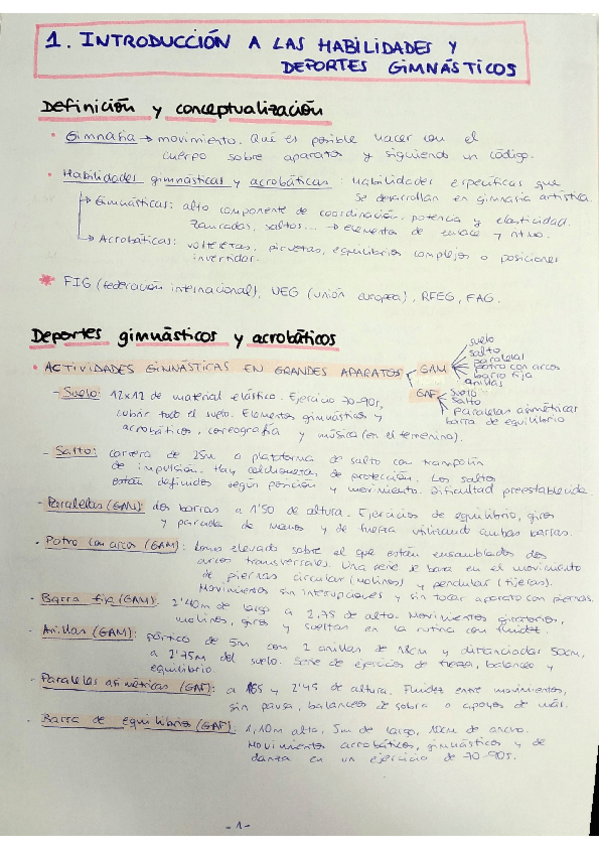 1. INTRODUCCIÓN A LAS HABILIDADES Y
DEPORTES GIMNÁSTICOS
Definición y conceptualización
• Gimnasia → movimiento. Qué es posible hacer con el
cuerpo sobre aparatos y siguiendo un código.
• Habilidades gimnásticas y acrobáticas: habilidades específicas que
se desarrollan en gimnasia artística.
→ Gimnásticas: alto componente de coordinación, potencia y elasticidad.
Zancadas, saltos... → elementos de enlace y ritmo.
→ Acrobáticas: volteretas, piruetas, equilibrios complejos o posiciones
invertidas.
* FIG (federación internacional), UEG (unión europea), RFEG, FAG.
Deportes gimnásticos y acrobáticos
• ACTIVIDADES GIMNÁSTICAS EN GRANDES APARATOS
GAM
suelo
salto
paralelas
potro con arcos
barra fija
anillas
GAF
suelo
salto
paralelas asimétricas
barra de equilibrio
- Suelo: 12x12 de material elástico. Ejercicio 70-90s,
cubrir todo el suelo. Elementos gimnásticos y
acrobáticos, coreografía y música (en el femenino).
- Salto: carrera de 25m a plataforma de salto con trampolín
de impulsión. Hay colchonetas de protección. Los saltos
están definidos según posición y movimiento. Dificultad preestablecida.
- Paralelas (GAM): dos barras a 1'50 de altura. Ejercicios de equilibrio, giros
y parada de manos y de fuerza utilizando ambas barras.
- Potro con arcos (GAM): lomo elevado sobre el que están ensamblados dos
arcos transversales. Una serie se basa en el movimiento
de piernas circular (molinos) y pendular (tijeras).
Movimientos sin interrupciones y sin tocar aparato con piernas.
- Barra fija (GAM): 2'40m de largo a 2,75 de alto. Movimientos giratorios,
molinos, giros y sueltas en la rutina con fluidez.
- Anillas (GAM): pórtico de 5m con 2 anillas de 18cm y distanciadas 50cm,
a 2'75m del suelo. Serie de ejercicios de fuerza, balanceo y
equilibrio.
- Paralelas asimétricas (GAF): a 165 y 2'45 de altura. Fluidez entre movimientos,
sin pausa, balanceos de sobra o apoyos de más.
- Barra de equilibrio (GAF): 1,10m alta, 5m de largo, 10cm de ancho.
Movimientos acrobáticos, gimnásticos y de
danza en un ejercicio de 70-90s.
- 1 -